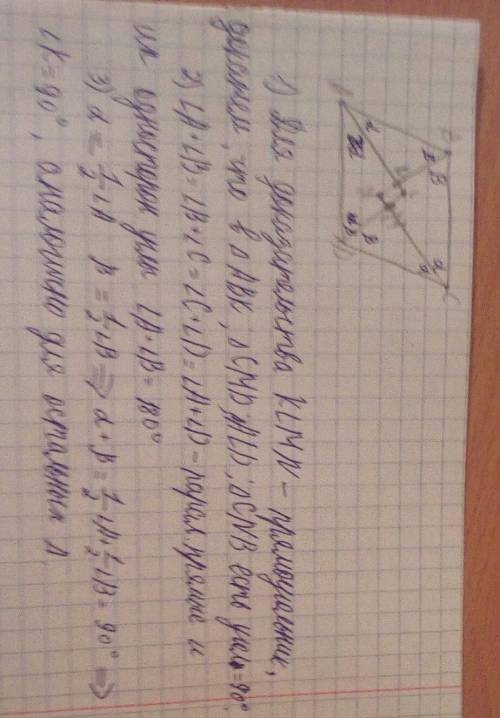 1) Для доказательства KLMN - прямоугольник,
докажем, что в ΔABK, ΔCMD, ALD, ΔCNB есть угол = 90°.
2) ∠A+∠B = ∠B+∠C = ∠C+∠D = ∠A+∠D - прямые и
их сумма ∠A+∠B = 180°
3) α = 1/2 ∠A β = 1/2 ∠B ⇒ α+β = 1/2 ∠A + 1/2 ∠B = 90° ⇒
∠K = 90°, аналогично для остальных Δ.